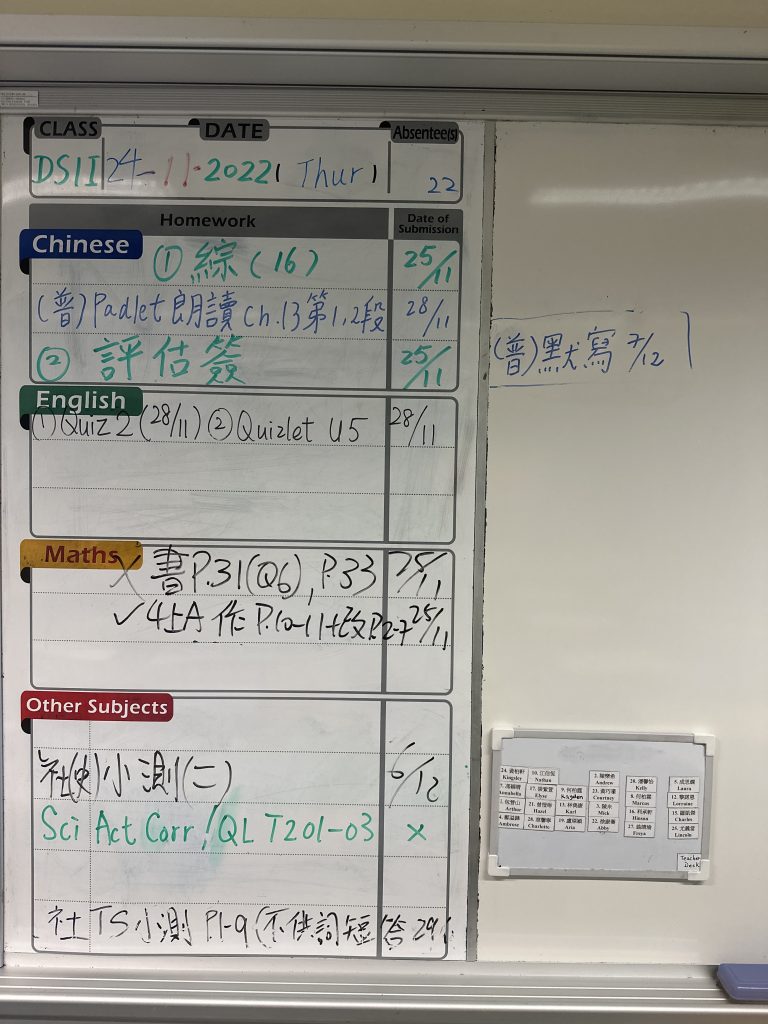 CLASS DATE Absentee(s)
DS1I 24-11-2022 (Thur) 22
Homework Date of Submission
Chinese
① 綜(16) 25/11
(普)Padlet 朗讀 ch.13 第1,2段 28/11
② 評估簽 25/11
English
① Quiz 2 (28/11) ② Quizlet U5 28/11
Maths
X 書 P.31(Q6), P.33 25/11
✓ 4上A 作 P.10-11+改P.2-7 25/11
Other Subjects
社(史)小測(二) 6/12
Sci Act Corr / QL T201-03 X
社 TS小測 P.1-9 (不供詞短答 29
(普)默寫 7/12
Kingsley
Nathan
Andrew
Kelly
Laura
Annabella
Elyse
Kayden
Courtney
Marcus
Lorraine
Arthur
Hazel
Karl
Mick
Hinson
Charles
Ambrose
Charlotte
Aria
Abby
Freya
Lincoln
Teacher Desk